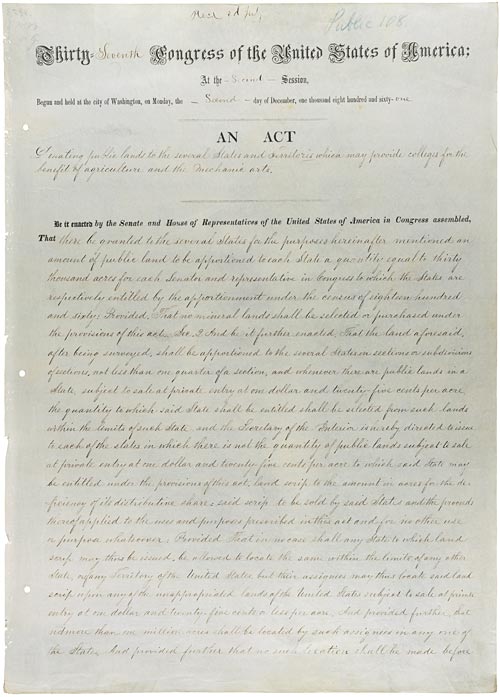 Public 108
Thirty-Seventh Congress of the United States of America;
At the Second Session,
Begun and held at the city of Washington, on Monday, the Second day of December, one thousand eight hundred and sixty-one
AN ACT
Donating public lands to the several States and Territories which may provide colleges for the
benefit of agriculture and the Mechanic arts.
Be it enacted by the Senate and House of Representatives of the United States of America in Congress assembled,
That there be granted to the several States for the purposes hereinafter mentioned an
amount of public land to be apportioned to each State a quantity equal to thirty
thousand acres for each Senator and representative in Congress to which the States are
respectively entitled by the apportionment under the census of eighteen hundred
and sixty: Provided, That no mineral lands shall be selected or purchased under
the provisions of this act. Sec. 2 And be it further enacted, That the land aforesaid,
after being surveyed, shall be apportioned to the several States in sections or subdivisions
of sections, not less than one quarter of a section, and whenever there are public lands in a
State, subject to sale at private entry at one dollar and twenty-five cents per acre,
the quantity to which said State shall be entitled shall be selected from such lands
within the limits of such State and the Secretary of the Interior is hereby directed to issue
to each of the states in which there is not the quantity of public lands subject to sale
at private entry at one dollar and twenty five cents per acre to which said State may
be entitled under the provisions of this act, land scrip to the amount in acres for the de-
ficiency of its distributive share: said scrip to be sold by said States and the proceeds
thereof applied to the uses and purposes prescribed in this act and for no other use
or purpose whatsoever: Provided That in no case shall any State to which land
scrip may thus be issued, be allowed to locate the same within the limits of any other
State, or of any Territory of the United States but their assignees may thus locate said land
scrip upon any of the unappropriated lands of the United States subject to sale at private
entry at one dollar and twenty-five cents, or less per acre. And provided further, that
not more than one million acres shall be located by such assignees in any one of
the States. And provided further that no such location shall be made before